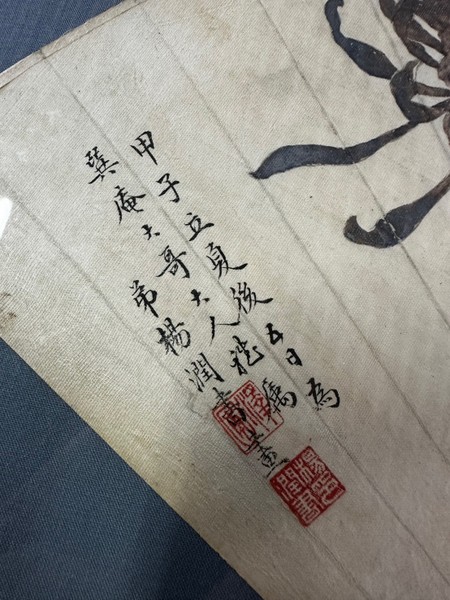 甲子立夏後五日為
巽庵大哥大人屬
弟楊潤書畫